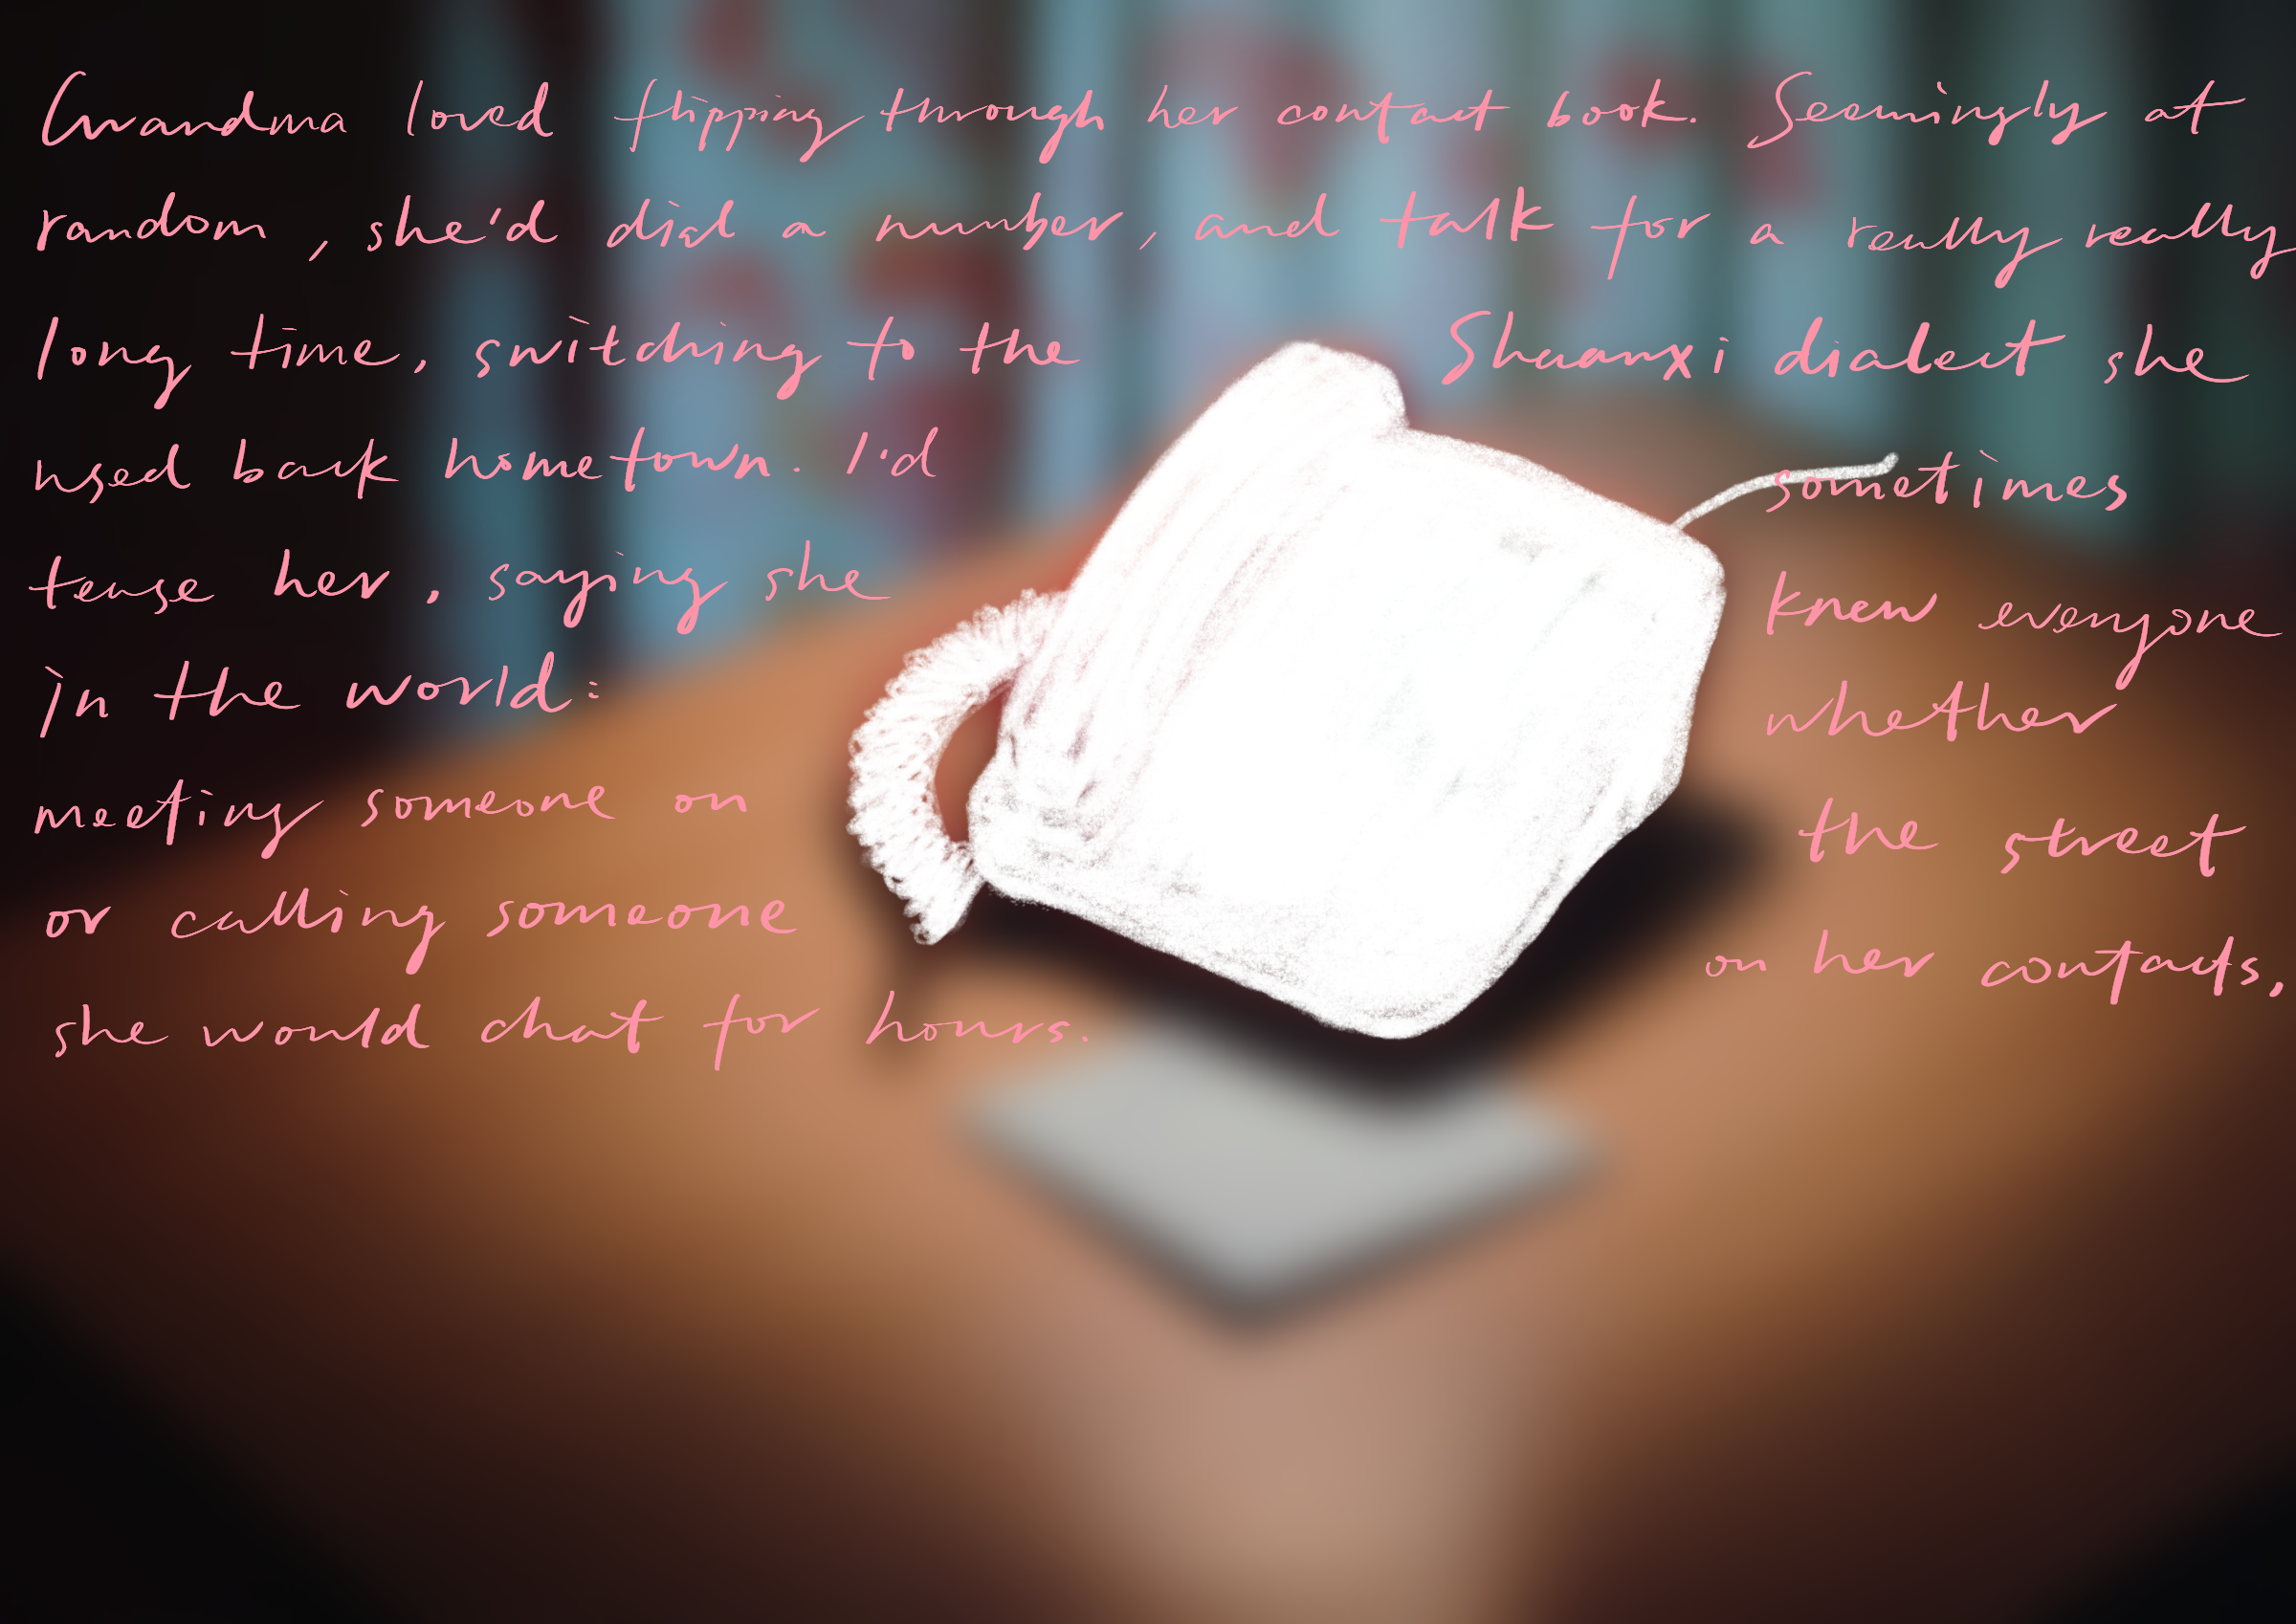 Grandma loved flipping through her contact book. Seemingly at
random, she'd dial a number, and talk for a really really
long time, switching to the Shaanxi dialect she
used back hometown. I'd sometimes
tease her, saying she knew everyone
in the world: whether
meeting someone on the street
or calling someone on her contacts,
she would chat for hours.